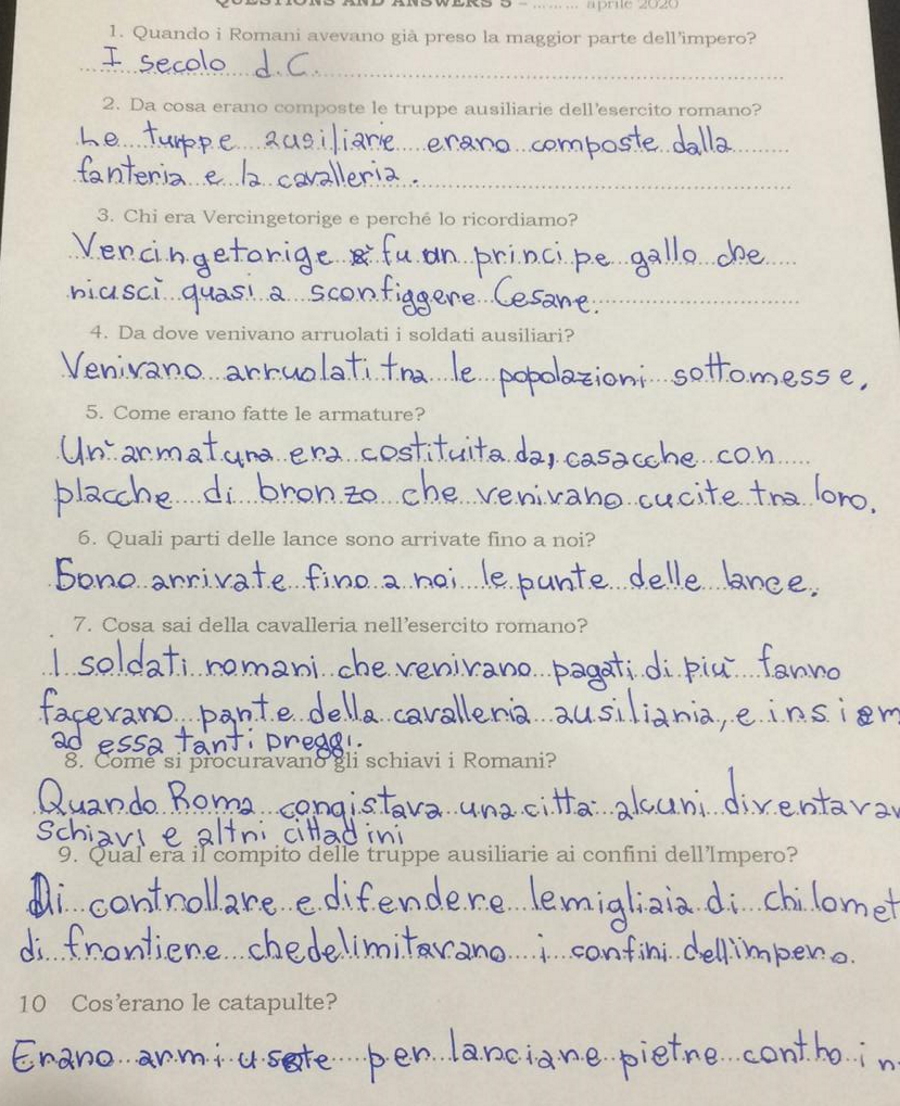 QUESTIONS AND ANSWERS 5 - ......... aprile 2020
1. Quando i Romani avevano già preso la maggior parte dell'impero?
I secolo d.C.
2. Da cosa erano composte le truppe ausiliarie dell'esercito romano?
Le turppe ausiliarie erano composte dalla
fanteria e la cavalleria.
3. Chi era Vercingetorige e perché lo ricordiamo?
Vercingetorige fu un principe gallo che
riuscì quasi a sconfiggere Cesare.
4. Da dove venivano arruolati i soldati ausiliari?
Venivano arruolati tra le popolazioni sottomesse.
5. Come erano fatte le armature?
Un'armatura era costituita da, casacche con
placche di bronzo che venivano cucite tra loro.
6. Quali parti delle lance sono arrivate fino a noi?
Sono arrivate fino a noi le punte delle lance.
7. Cosa sai della cavalleria nell'esercito romano?
I soldati romani che venivano pagati di più fanno
facevano parte della cavalleria ausiliaria, e insiem
ad essa tanti preggi.
8. Come si procuravano gli schiavi i Romani?
Quando Roma conqistava una città alcuni diventava
schiavi e altri cittadini
9. Qual era il compito delle truppe ausiliarie ai confini dell'Impero?
Di controllare e difendere le migliaia di chilomet
di frontiere che delimitavano i confini dell'impero.
10 Cos'erano le catapulte?
Erano armi usate per lanciare pietre contro i n